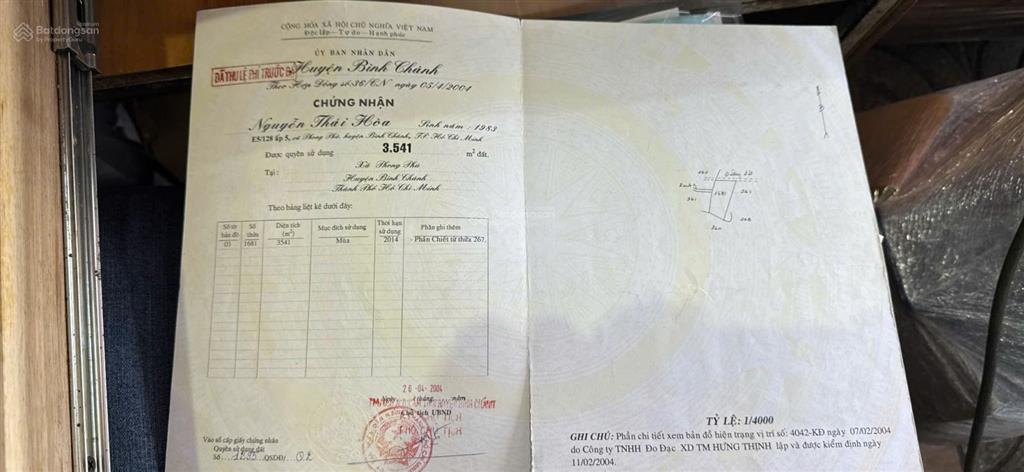 Batdongsan
by PropertyGuru
CỘNG HÒA XÃ HỘI CHỦ NGHĨA VIỆT NAM
Độc lập — Tự do — Hạnh phúc
ỦY BAN NHÂN DÂN
Huyện Bình Chánh
ĐÃ THU LỆ PHÍ TRƯỚC BẠ
Theo Hợp Đồng số:36/CN ngày 05/4/2004
CHỨNG NHẬN
Nguyễn Thái Hòa Sinh năm : 1983
E5/128 lấp 5, xã Phong Phú, huyện Bình Chánh, T.P. Hồ Chí Minh
Được quyền sử dụng 3.541 m² đất.
Tại : Xã Phong Phú
Huyện Bình Chánh
Thành Phố Hồ Chí Minh
Theo bảng liệt kê dưới đây:
Số tờ bản đồ Số thửa Diện tích (m²) Mục đích sử dụng Thời hạn sử dụng Phần ghi thêm
03 1681 3541 Mùa 2014 - Phần Chiết từ thửa 267.
26-04-2004
Ngày tháng năm
Chủ tịch UBND
Vào sổ cấp giấy chứng nhận
Quyền sử dụng đất
Số 1295 QSDĐ/ Q2
1681
TỶ LỆ: 1/4000
GHI CHÚ: Phần chi tiết xem bản đồ hiện trạng vị trí số: 4042-KĐ ngày 07/02/2004
do Công ty TNHH Đo Đạc XD TM HƯNG THỊNH lập và được kiểm định ngày
11/02/2004.
Batdongsan
by PropertyGuru